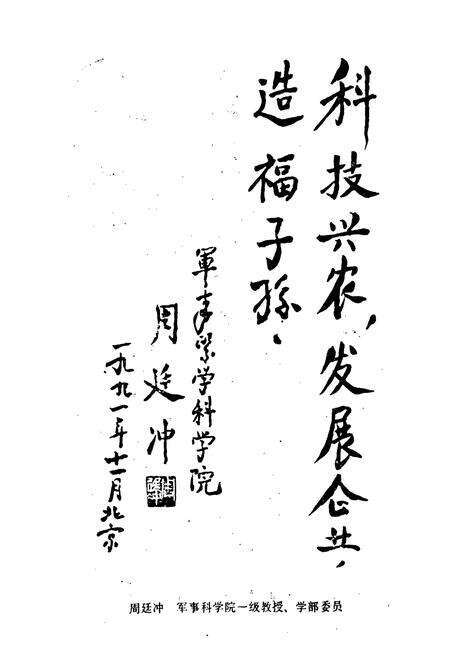 科技兴农，发展企业，
造福子孙．
軍事醫学科学院
周廷冲
一九九一年十一月北京
周廷冲　军事科学院一级教授、学部委员